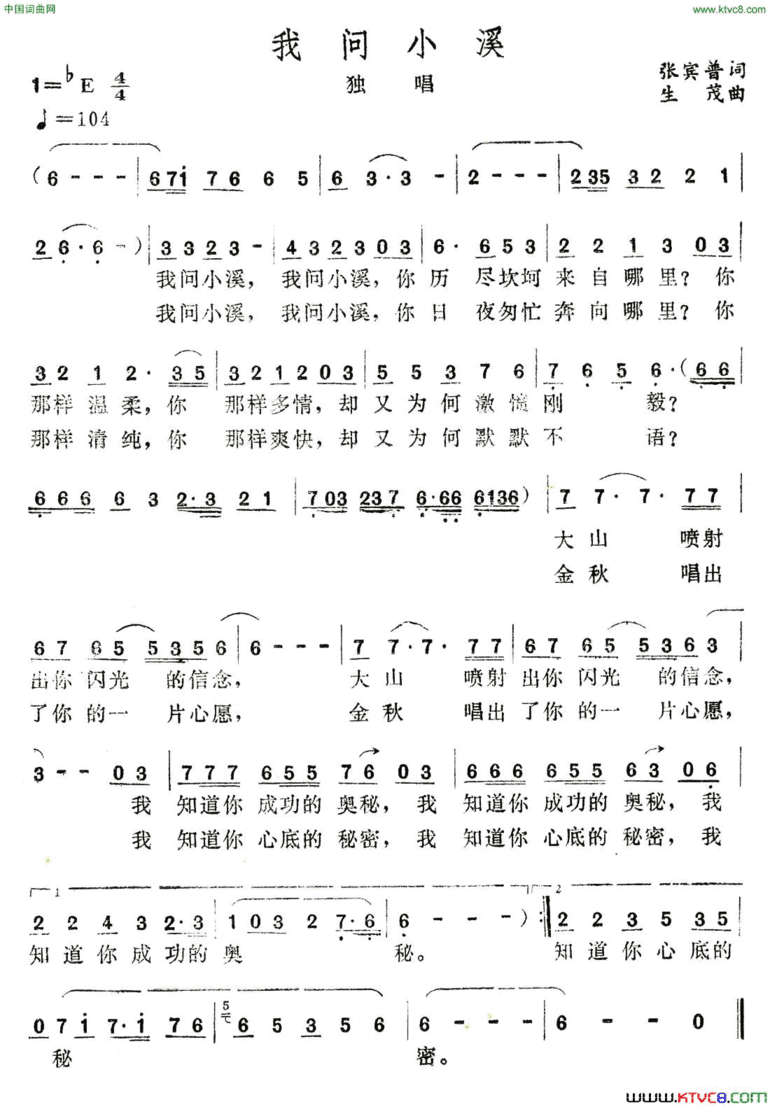 中国词曲网
www.ktvc8.com
我问小溪
独 唱
张宾普词
生 茂曲
1=♭E 4/4
♩=104
(6 - - - | 671̇ 76 6 5 | 6 3·3 - | 2 - - - | 235 32 2 1 |
2 6·6 -) | 3 3 2 3 - | 4 3 2 3 0 3 | 6· 6 5 3 | 2 2 1 3 0 3 |
我问小溪, 我问小溪, 你历 尽坎坷来自哪里? 你
我问小溪, 我问小溪, 你日 夜匆忙奔向哪里? 你
3 2 1 2· 3 5 | 3 2 1 2 0 3 | 5 5 3 7 6 | 7 6 5 6·(6 6 |
那样温柔, 你 那样多情, 却又为何激愤刚 毅?
那样清纯, 你 那样爽快, 却又为何默默不 语?
6 6 6 6 3 2·3 2 1 | 7 0 3 2 3 7 6·6 6 6 1 3 6) | 7 7·7· 7 7 |
大山 喷射
金秋 唱出
6 7 6 5 5 3 5 6 | 6 - - - | 7 7·7· 7 7 | 6 7 6 5 5 3 6 3 |
出你闪光 的信念, 大山 喷射出你闪光 的信念,
了你的一 片心愿, 金秋 唱出了你的一 片心愿,
3 - - 0 3 | 7 7 7 6 5 5 7 6 0 3 | 6 6 6 6 5 5 6 3 0 6 |
我 知道你成功的奥秘, 我 知道你成功的奥秘, 我
我 知道你心底的秘密, 我 知道你心底的秘密, 我
1 2
2 2 4 3 2·3 | 1 0 3 2 7·6 | 6 - - -) :‖ 2 2 3 5 3 5 |
知道你成功的奥 秘。 知道你心底的
0 7 1̇ 7·1̇ 7 6 | 5 6 5 3 5 6 | 6 - - - | 6 - - 0 ‖
秘 密。
www.KTVC8.com